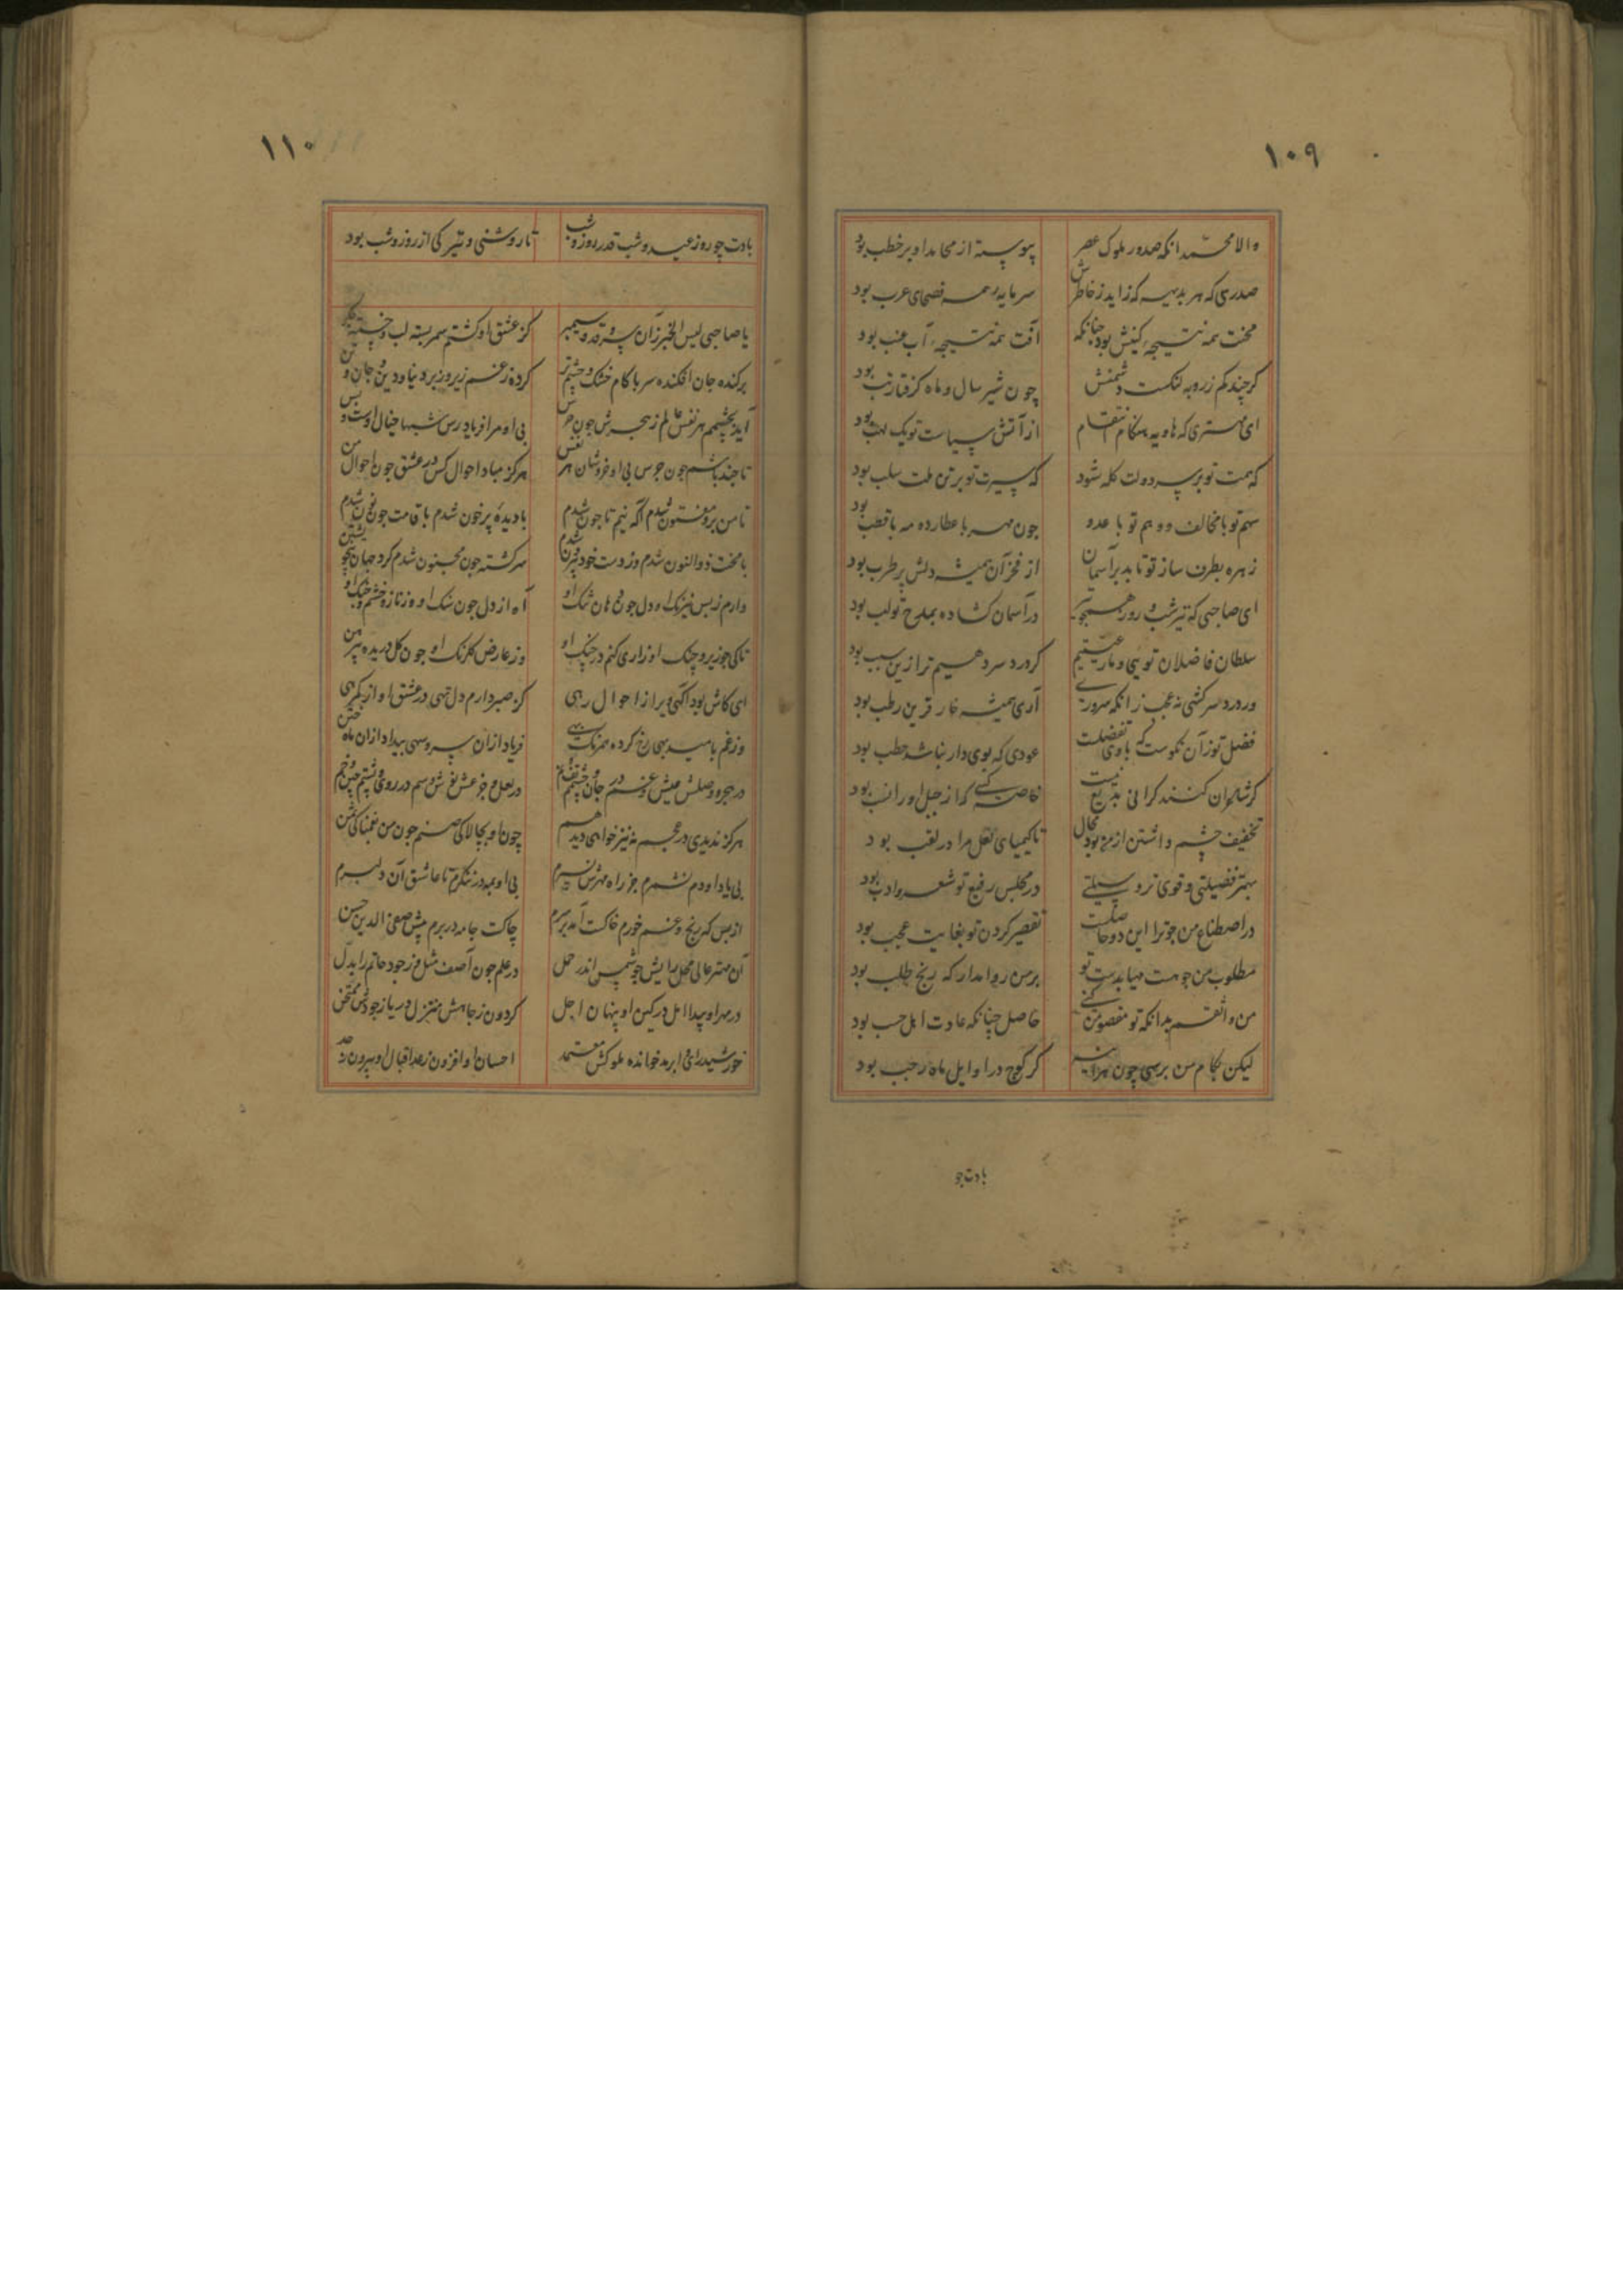 ۱۰۹
والا محمد انکه صدور ملوک عصر پیوسته از محامد او بر خطب بود
صدری که هر بدیهه که زاید ز خاطرش سرمایه همه فصحای عرب بود
محنت همه نتیجه کینش بود چنانکه آفت همه نتیجه آب عنب بود
کرچند کم ز روبه لنکست دشمنش چون شیر سال و ماه گرفتار تب بود
ای مهتری که هاویه هنکام انتقام از آتش سیاست تو یک لهب بود
که همت تو بر سر دولت کله شود که سیرت تو بر تن ملت سلب بود
سهم تو با مخالف و وهم تو با عدو چون مهر با عطارد و مه با قصب بود
زهره بطرف ساز تو تا بد بر آسمان از فخر آن همیشه دلش پر طرب بود
ای صاحبی که تیر شب و روز در آسمان کشاده بمدح تو لب بود
سلطان فاضلان تویی و ما رعیتیم کر درد سر دهیم ترا زین سبب بود
ور درد سر کشی نه عجب زانکه سروری آری همیشه خار قرین رطب بود
فضل تو زآن نکوست که با وی تفضلست عودی که بوی دار نباشد حطب بود
کر شاعران کنند کرانی بدیع نیست خاصه کسی که از جبل او را نسب بود
تخفیف چشم داشتن از من بود محال تا کیمیای ثقل مرا در لقب بود
بهتر فضیلتی و قوی‌تر وسیلتی در مجلس رفیع تو شعر و ادب بود
در اصطناع من چو ترا این دو حاصلست تقصیر کردن تو بغایت عجب بود
مطلوب من چو هست مهیا بدست تو بر من روا مدار که رنج طلب بود
من واثقم بدانکه تو مقصود من کنی حاصل چنانکه عادت اهل حسب بود
لیکن بکام من برسی چون کر کوچ در اوایل ماه رجب بود
بادت چو
۱۱۰
بادت چو روز عید و شب قدر روز و شب تا روشنی و تیرگی از روز و شب بود
یا صاحبی لیس الخبر زان سرو قد سیمبر کز عشق او کشتم سمر بسته لب و خسته جکر
برکنده جان افکنده سر با کام خشک و چشم تر کرده ز غم زیر و زبر دنیا و دین و جان و تن
آید بچشمم هر نفس عالم ز هجرش چون قفس بی او مرا فریاد رس شبها خیال اوست و بس
تا چند باشم چون جرس بی او خروشان هر نفس هرکز مباد احوال کس در عشق چون احوال من
تا من برو مفتون شدم آکه نیم تا چون شدم با دیده پر خون شدم با قامت چون نون شدم
با محنت ذوالنون شدم وز دست خود بیرون شدم سرکشته چون مجنون شدم کرد جهان بی خویشتن
دارم ز بس نیرنک او دل چون دهان تنک او آه از دل چون سنک او وز ناز و خشم و جنک او
تا کی چو زیر و چنک او زاری کنم در چنک او وز عارض کلرنک او چون کل دریده پیرهن
ای کاش بود آکهی ویرا ز احوال رهی کز صبر دارم دل تهی در عشق او از بیکرهی
وز غم بامید بهی رخ کرده همرنک بهی فریاد از آن سرو سهی بیداد از آن ماه ختن
در هجر و وصلش عیش و غم در جان و چشمم تف و نم در لعل و جزعش نوش و سم در روی و پشتم چین و خم
هرکز ندیدی در عجم نه نیز خواهی دید هم چون او بچالاکی صنم چون من بغمناکی شمن
بی یاد او دم نشمرم جز راه مهرش نسپرم بی او بمه در ننکرم تا عاشق آن دلبرم
از بس که رنج و غم خورم خاکست آمد بر سرم چاکست جامه در برم پیش صفی الدین حسن
آن مهتر عالی محل رایش چو شمس اندر حمل در علم چون آصف مثل وز جود حاتم را بدل
در مهر او پیدا امل در کین او پنهان اجل کردون ز جاهش مبتذل دریا ز جودش ممتحن
خورشید رای و ابر ید خوانده ملوکش معتمد احسان او افزون ز عد اقبال او بیرون ز حد